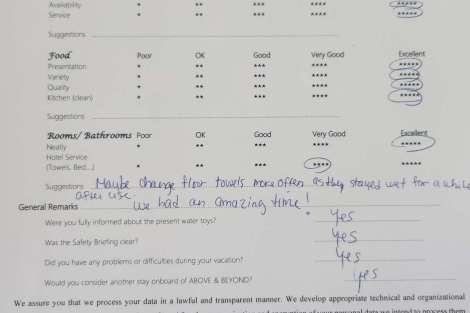 Availability * ** *** **** *****
Service * ** *** **** *****
Suggestions
Food Poor OK Good Very Good Excellent
Presentation * ** *** **** *****
Variety * ** *** **** *****
Quality * ** *** **** *****
Kitchen (clean) * ** *** **** *****
Suggestions
Rooms/ Bathrooms Poor OK Good Very Good Excellent
Neatly * ** *** **** *****
Hotel Service
(Towels, Bed...) * ** *** **** *****
Suggestions Maybe change floor towels more often as they stayed wet for a while
after use
General Remarks We had an amazing time!
Were you fully informed about the present water toys? Yes
Was the Safety Briefing clear? Yes
Did you have any problems or difficulties during your vacation? Yes
Would you consider another stay onboard of ABOVE & BEYOND? Yes
We assure you that we process your data in a lawful and transparent manner. We develop appropriate technical and organizational
of your personal data we intend to process them